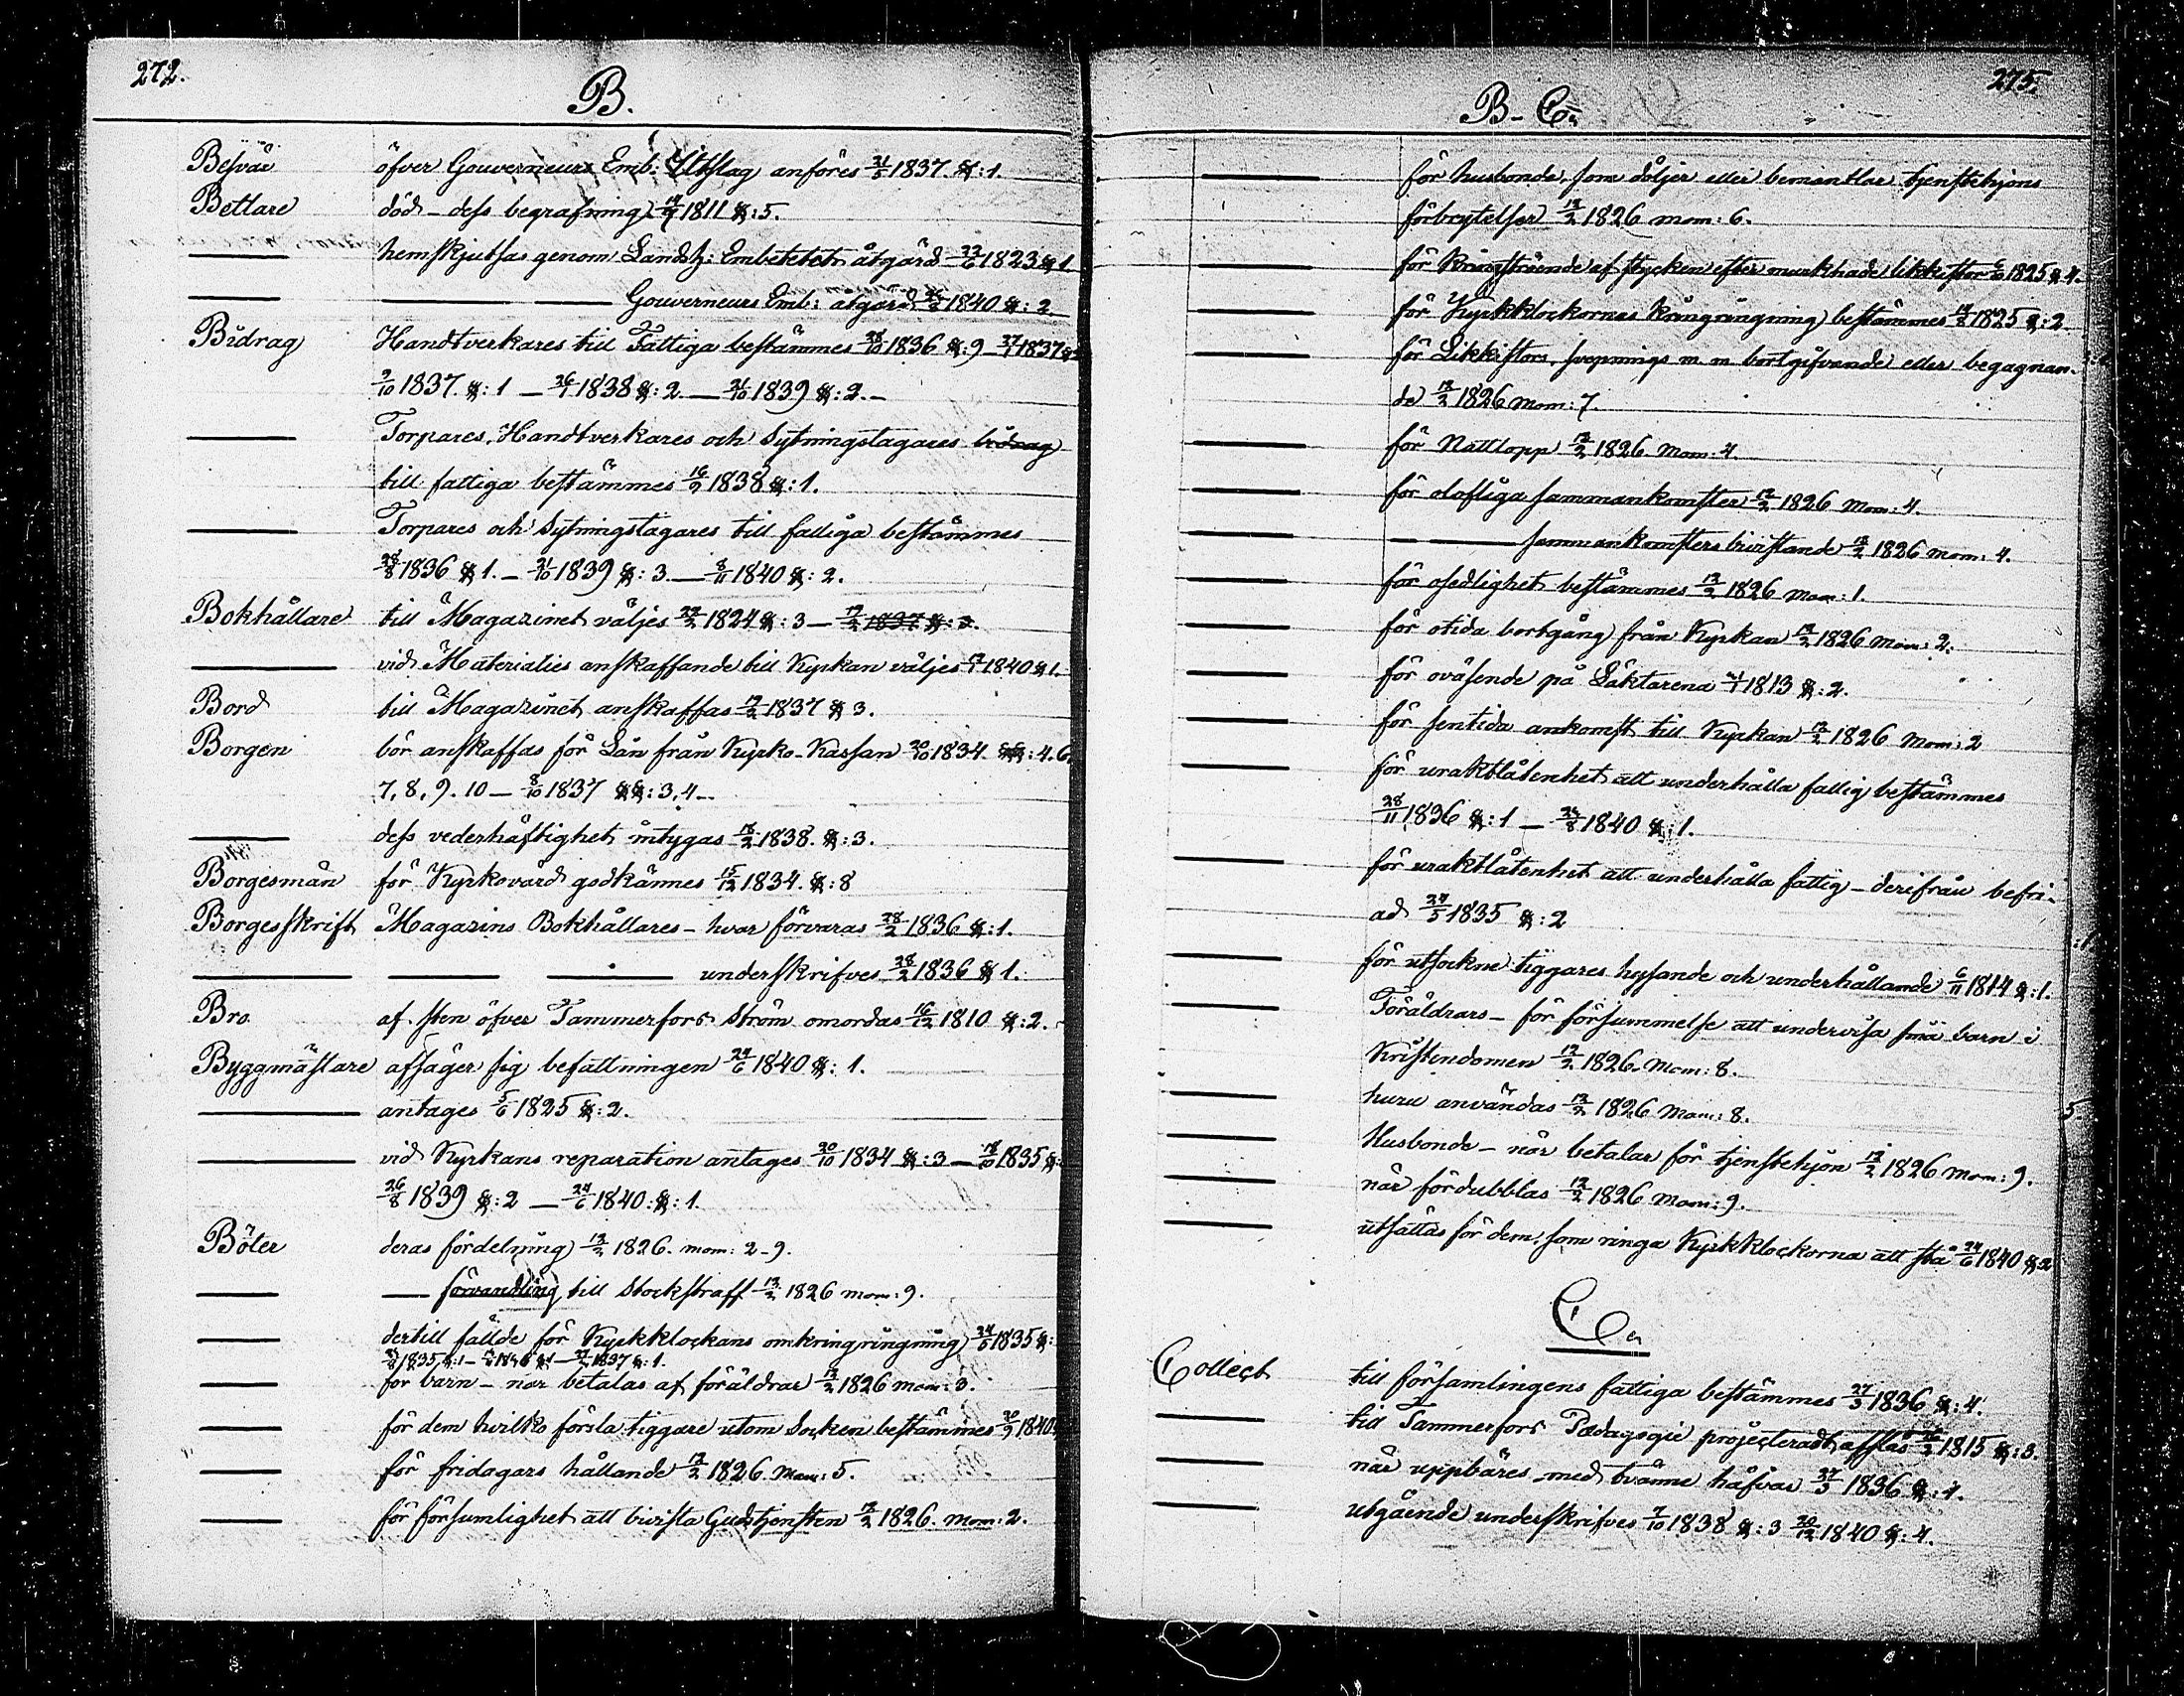 272.
B.
Besvär öfver Gouverneurs Emb: Utslag anföres 21/5 1837. §:1.
Bettare död – dess begrafning 14/7 1811 §:5.
—— hemskjutsas genom Landsh: Embetetets åtgärd 22/6 1823 § 1.
—— —— —— Gouverneurs Emb: åtgärd 1840 §: 2.
Bidrag Handtverkares till Fattiga bestämmes 28/10 1836 §:9 – 27/1 1837 §
2/10 1837. §:1 – 26/1 1838 §:2. – 21/10 1839 §:2. –
—— Torpares, Handtverkares och Sytningstagares bidrag
till fattiga bestämmes 16/9 1838 §:1.
—— Torpares och Sytningstagares till fattiga bestämmes
28/8 1836 § 1. – 21/10 1839 §: 3. – 8/11 1840 §: 2.
Bokhållare till Magazinet väljes 22/2 1824 §: 3 – 12/2 1837 §: 3.
—— vid Materialies anskaffande till Kyrkan väljes 1840 § 1.
Bord till Magazinet anskaffas 12/2 1837 § 3.
Borgen bör anskaffas för Lån från Kyrko-Kassan 20/10 1834. §§: 4. 6.
7, 8, 9. 10 – 8/10 1837 §§: 3, 4 –
—— dess vederhäftighet intygas 18/2 1838. §: 3.
Borgesmän för Kyrkovärd godkännes 15/12 1834. §: 8
Borgesskrift Magazins Bokhållares – hvar förvaras 28/2 1836 §: 1.
—— —— —— underskrifves 28/2 1836 § 1.
Bro. af sten öfver Tammerfors Ström omordas 16/12 1810 §: 2.
Byggmästare afsäger sig befattningen 24/6 1840 §: 1.
—— antages 5/6 1825 §: 2.
—— vid Kyrkans reparation antages 20/10 1834 §: 3 – 18/10 1835 §:
26/8 1839 §: 2 – 24/6 1840. §: 1.
Böter deras fördelning 12/2 1826. mom: 2-9.
—— —— förvandling till Stockstraff 12/2 1826 mom: 9.
—— dertill fällde för Kyrkklockans omkringringning 24/5 1835 §:
1835 §:1 – 1837 §: 1.
—— för barn – när betalas af föräldrar 12/2 1826 mom: 3.
—— för dem hvilka försla tiggare utom Socken bestämmes 20/9 1840.
—— för fridagars hållande 12/2 1826. Mom: 5.
—— för försumlighet att bivista Gudstjensten 12/2 1826. Mom: 2.
275.
B – C.
—— för husbonde, som döljer eller bemantlar tjenstehjons
förbrytelser 12/2 1826 mom: 6.
—— för Kringströende af stycken efter murknade likkistor 1825 § 4.
—— för Kyrkklockornas kringringning bestämmes 14/8 1825 §: 2
—— för Likkistors, svepnings m. m. bortgifvande eller begagnan-
de 12/2 1826 Mom: 7.
—— för Nattlopp 12/2 1826 Mom: 4.
—— för olofliga sammankomster 12/2 1826 Mom: 4.
—— —— —— sammankomsters bivistande 12/2 1826 mom: 4.
—— för osedlighet bestämmes 12/2 1826 Mom: 1.
—— för otida bortgång från Kyrkan 12/2 1826 Mom: 2.
—— för oväsende på Läktarena 1813 §: 2.
—— för sentida ankomst till Kyrkan 12/2 1826 Mom: 2
—— för uraktlåtenhet att underhålla fattig bestämmes
28/11 1836 §: 1 – 24/8 1840 §: 1.
—— för uraktlåtenhet att underhålla fattig – derifrån befri-
ad 24/5 1835 §: 2
—— för utsockne tiggares hysande och underhållande 6/11 1814 §: 1.
—— Föräldrars – för försummelse att undervisa små barn i
Kristendomen 12/2 1826. Mom: 8.
—— huru användas 12/2 1826 Mom: 8.
—— Husbonde – när betalar för tjenstehjon 12/2 1826 Mom: 9.
—— när fördubblas 12/2 1826 Mom: 9.
—— utsättas för dem, som ringa Kyrkklockorna att stå 24/6 1840 § 2
C.
Collect till församlingens fattiga bestämmes 27/3 1836 §: 4.
—— till Tammerfors Pædagogie projecteradt, afslås 1815 §: 3.
—— när uppbäres med tvänne håfvar 27/3 1836 §: 4.
—— utgående underskrifves 7/10 1838 §: 3 20/12 1840 §: 4.